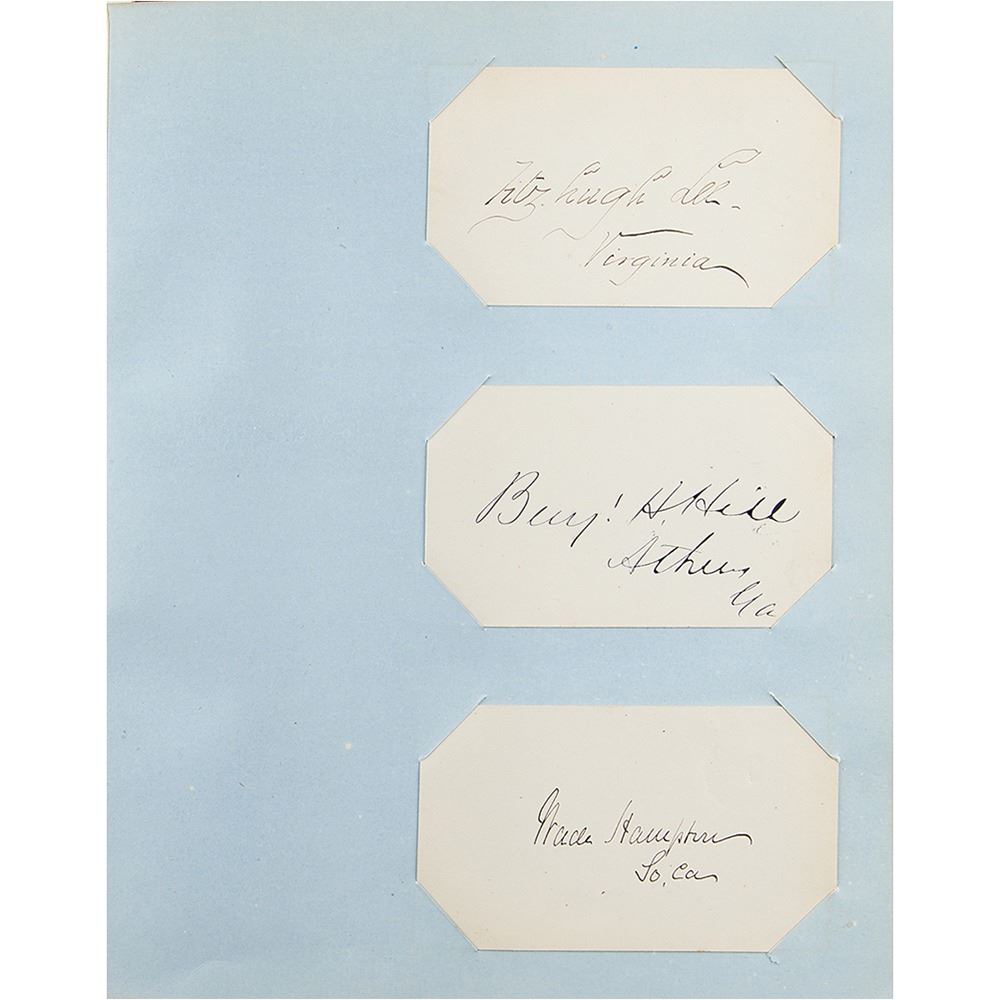 Fitzhugh Lee -
Virginia
Benj. H. Hill
Athens
Ga
Wade Hampton
So. Ca